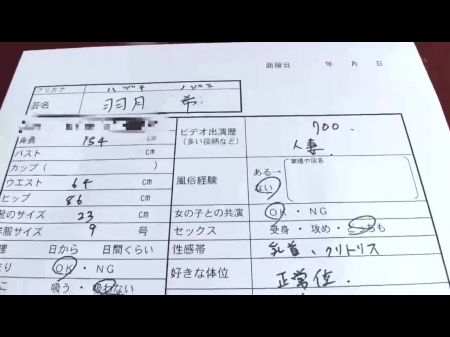 面接日 年 月 日
フリガナ ハヅキ ノゾミ
芸名 羽月 希
身長 154 cm
バスト cm
カップ( )
ウエスト 64 cm
ヒップ 86 cm
靴のサイズ 23 cm
洋服サイズ 9 号
生理 日から 日間くらい
OK・NG
吸う・吸わない
ビデオ出演歴 700.
(多い役柄など) 人妻
風俗経験 ある→ 業種や店名
ない
女の子との共演 OK・NG
セックス 受身・攻め・どっちも
性感帯 乳首、クリトリス
好きな体位 正常位.